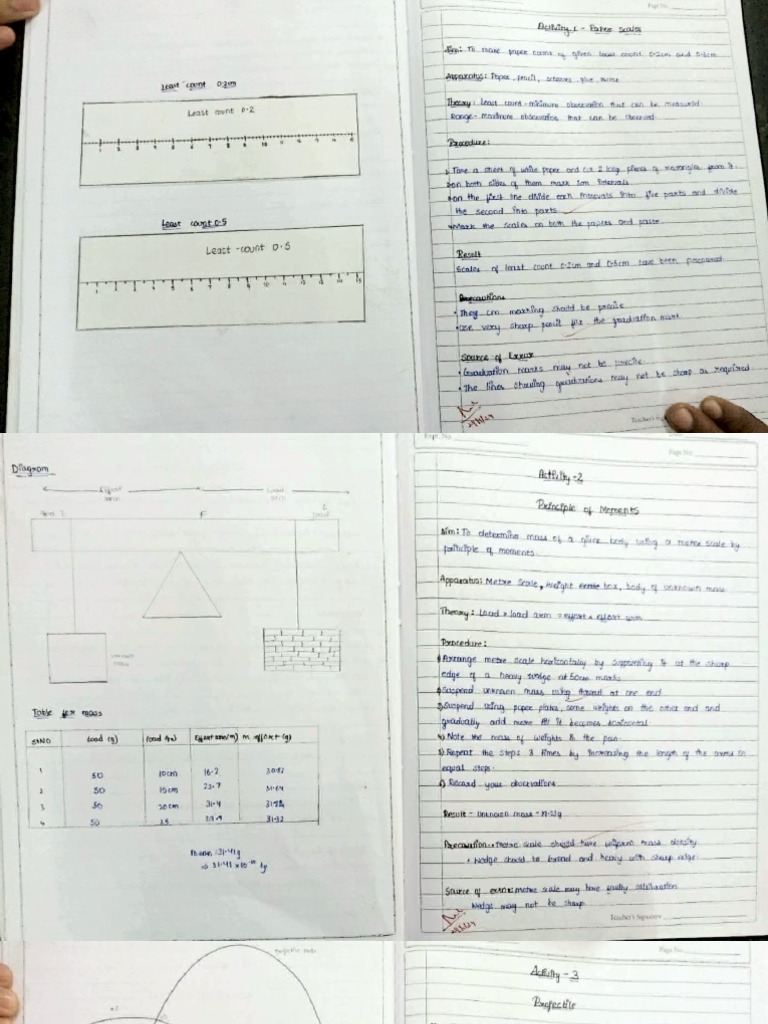 Least count 0.2cm
Least count 0.2
1 2 3 4 5 6 7 8 9 10 11 12 13 14 15
Least count 0.5
Least-count 0.5
1 2 3 4 5 6 7 8 9 10 11 12 13 14 15
Page No.
Activity 1 - Paper Scales
Aim: To make paper scales of given least count 0.2cm and 0.5cm
Apparatus: Paper, pencil, scissors, glue
Theory: Least count - minimum observation that can be measured
Range - maximum observation that can be observed
Procedure:
Take a sheet of white paper and cut 2 long pieces of rectangles from it.
on both sides of them mark 1cm intervals
on the first line divide each intervals into five parts and divide
the second into parts
Mark the scales on both the papers and paste
Result
Scales of least count 0.2cm and 0.5cm have been prepared
Precautions
• They cm marking should be precise
• use very sharp pencil for the graduation mark
Source of Error
• Graduation marks may not be precise
• The lines showing graduations may not be sharp as required
Teacher's
Diagram
Effort arm
Load arm
F
Table for mass
Sl.NO Load (g) Effort arm
1 50 10cm 16.2
2 50 15cm 23.7
3 50 20cm 31.4
4 50 25
mean = 31.41g
Expt. No.
Page No.
Activity - 2
Principle of Moments
Aim: To determine mass of a given body using a metre scale by
principle of moments
Apparatus: Metre Scale, weight box, body of unknown mass
Theory: Load x load arm = effort x effort arm
Procedure:
Arrange metre scale horizontally by supporting it at the sharp
edge of a heavy wedge at 50cm mark
Suspend unknown mass using thread at one end
Suspend using paper plates, some weights on the other end and
gradually add more till it becomes horizontal
Note the mass of weights in the pan
Repeat the steps 3 times by increasing the length of the arms in
equal steps
Record your observations
Result - Unknown mass =
Precaution • metre scale should have uniform mass density
• Wedge should be broad and heavy with sharp edge
Source of error: metre scale may have faulty calibration
Wedge may not be sharp
Teacher's Signature
Page No.
Activity - 3
Projectile